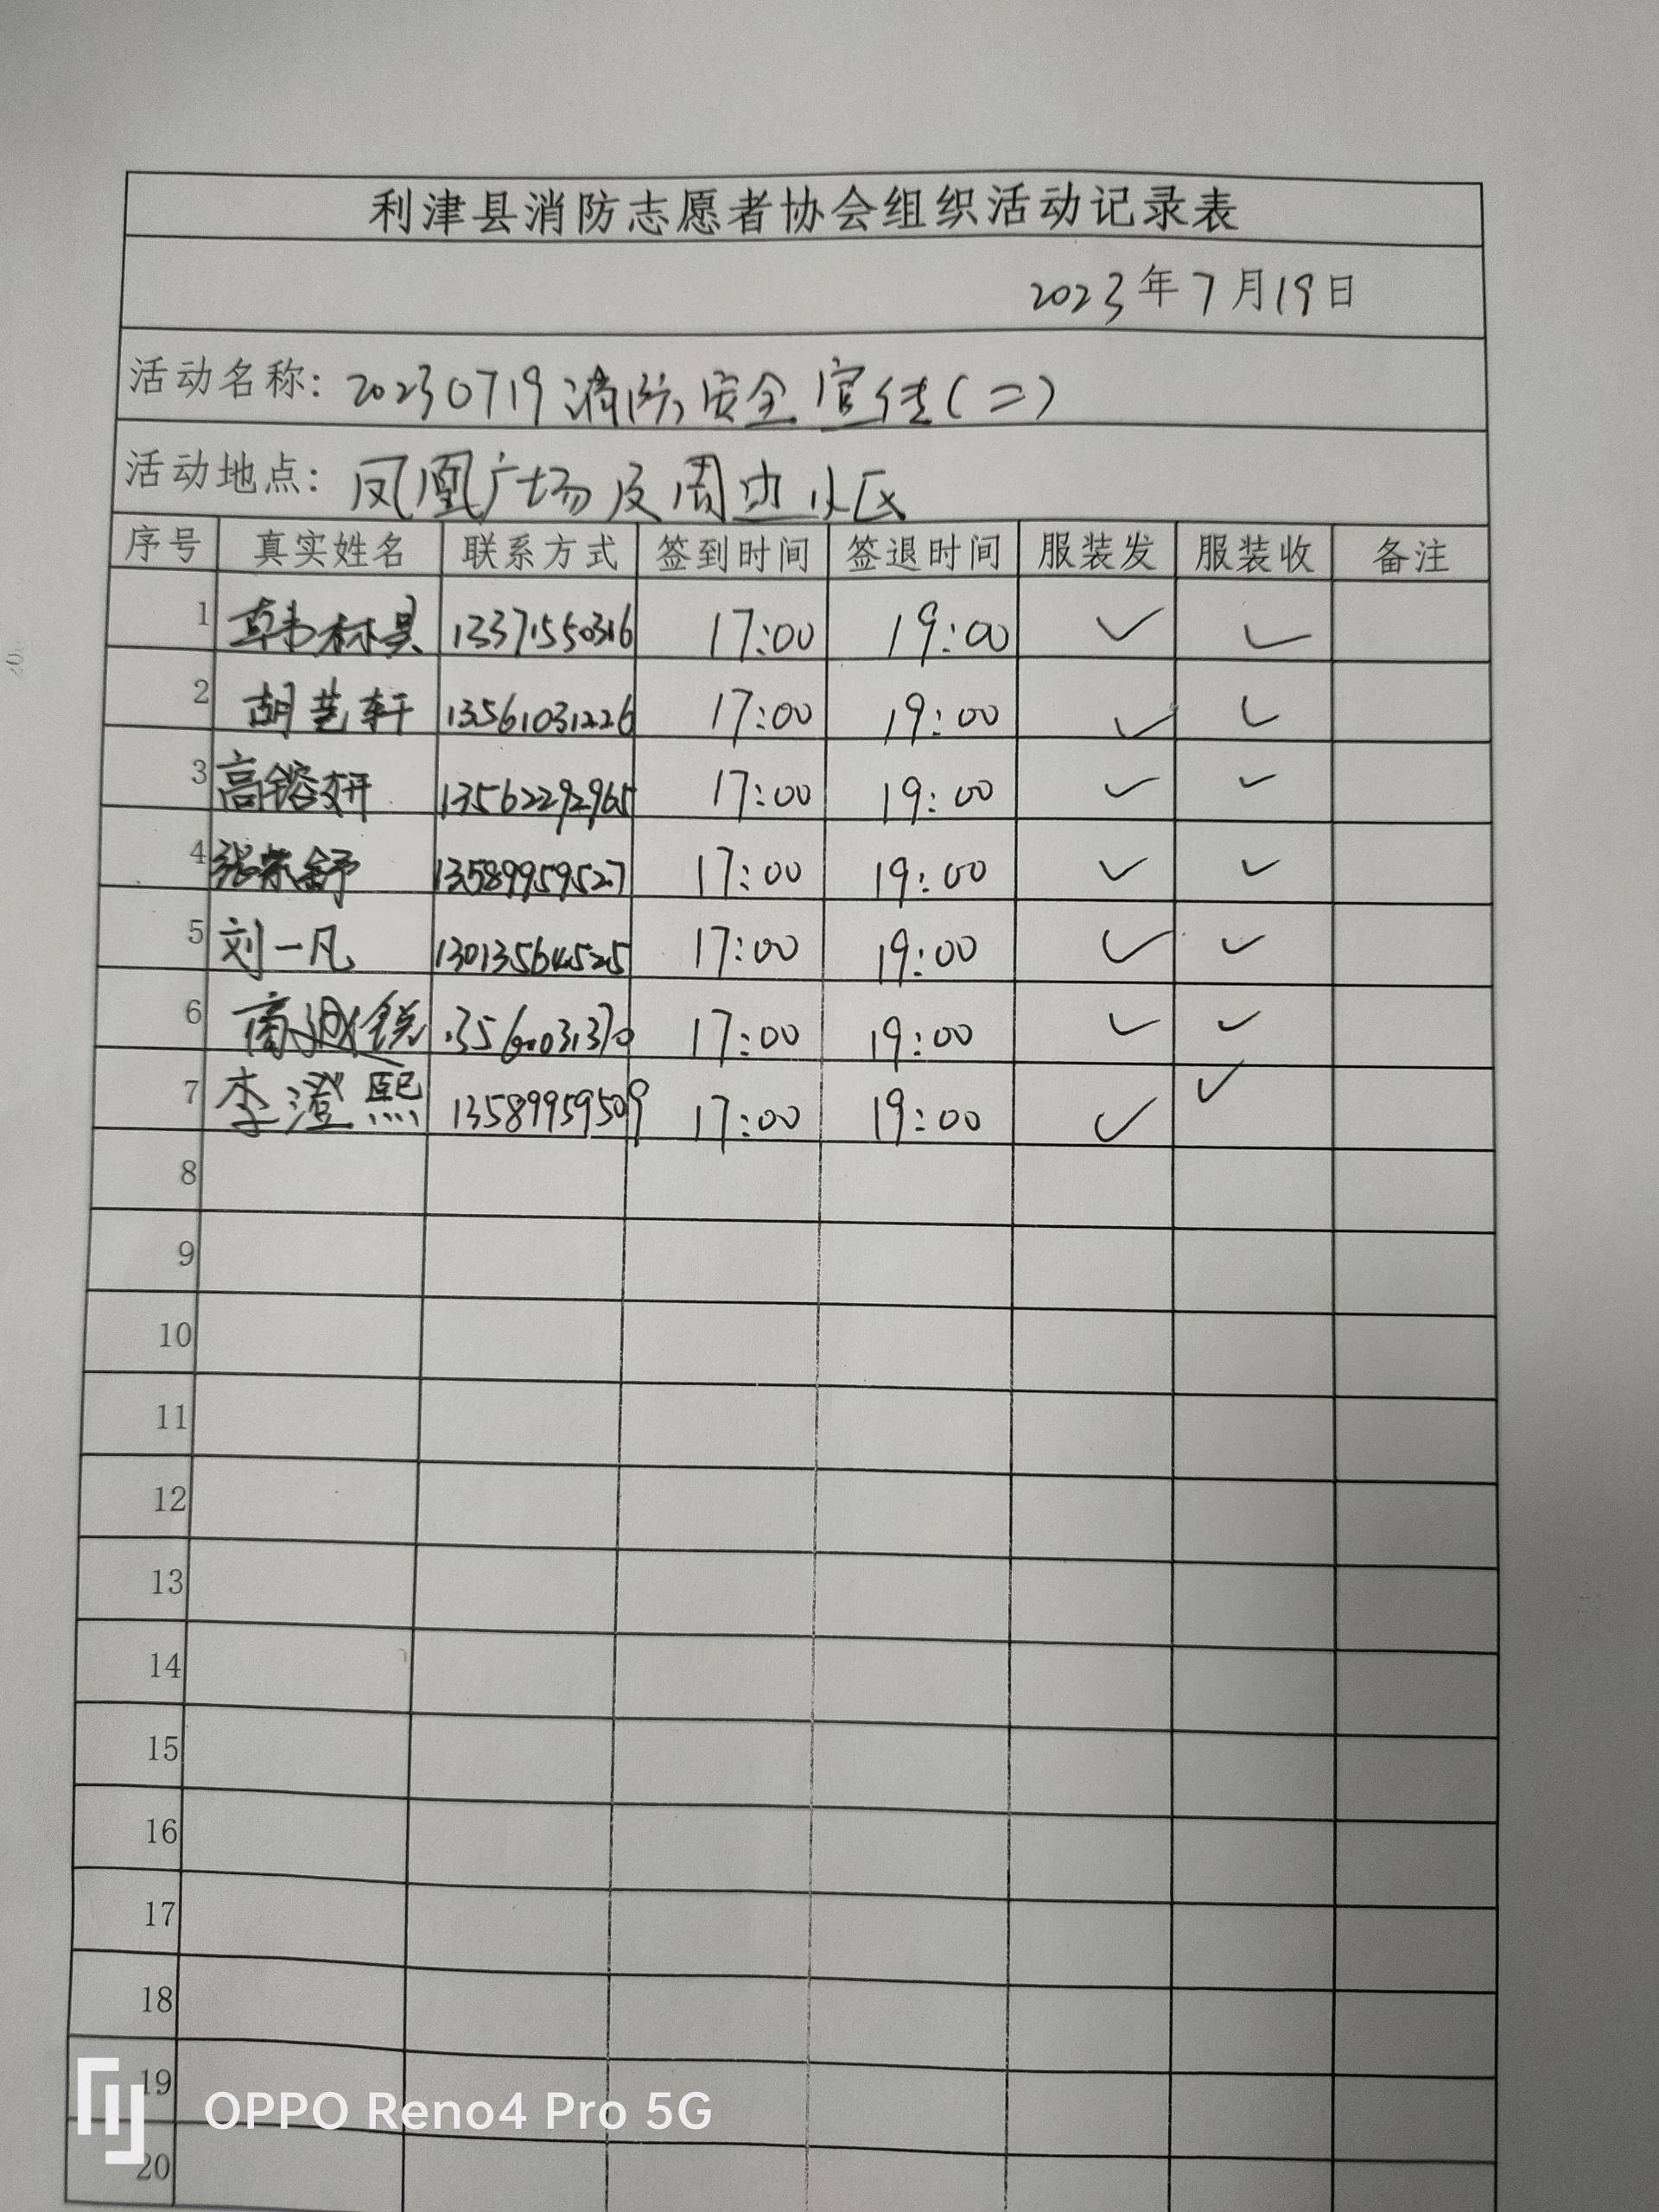 利津县消防志愿者协会组织活动记录表
2023年7月19日
活动名称: 20230719消防安全宣传(二)
活动地点: 凤凰广场及周边小区
序号 真实姓名 联系方式 签到时间 签退时间 服装发 服装收 备注
1 韩林具 13371550316 17:00 19:00 ✓ ✓
2 胡艺轩 13561031226 17:00 19:00 ✓ ✓
3 高镕妍 13562292965 17:00 19:00 ✓ ✓
4 张荣舒 13589959527 17:00 19:00 ✓ ✓
5 刘一凡 13013564525 17:00 19:00 ✓ ✓
6 17:00 19:00 ✓ ✓
7 李澄熙 13589959509 17:00 19:00 ✓ ✓
8
9
10
11
12
13
14
15
16
17
18
19
20
OPPO Reno4 Pro 5G